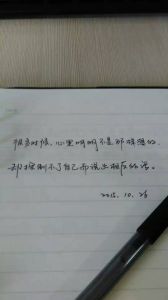 很多时候，心里明明不是那样想的，
却控制不了自己而说出相反的话。
2015.10.26